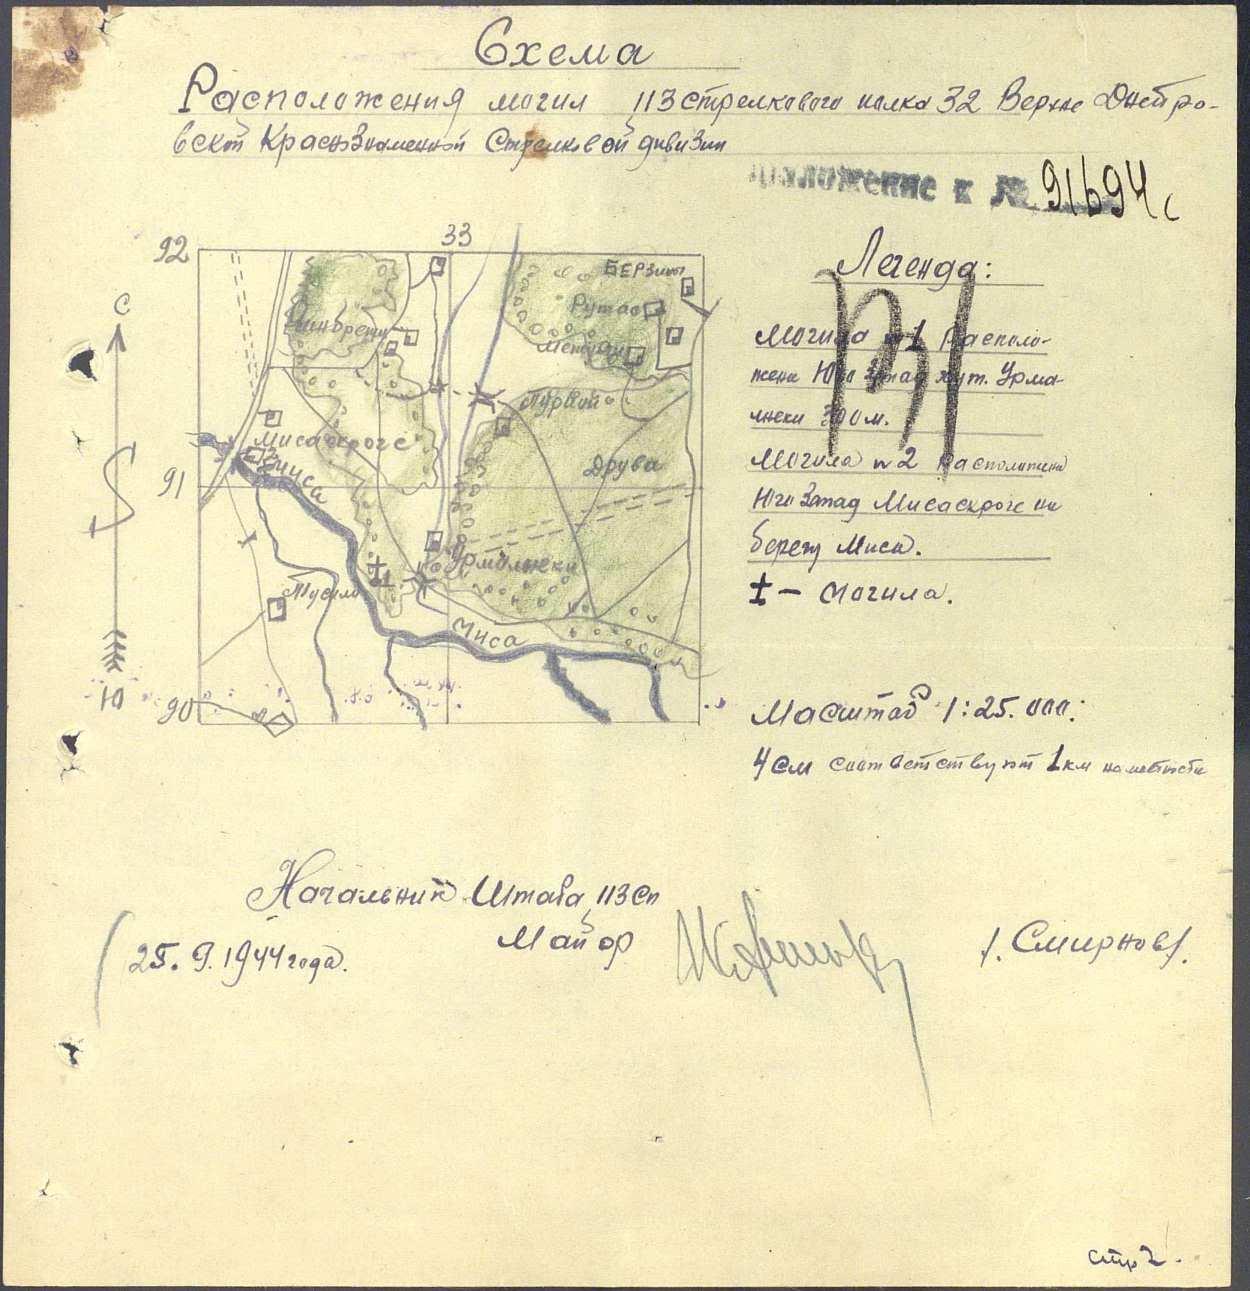 Схема
Расположения могил 113 стрелкового полка 32 Верхне Днепро-
вской Краснознаменной Стрелковой дивизии
приложение к № 91694с
92
33
С
БЕРЗИНЫ
Рутас
Мисаскроге
Пурвой
Друва
Миса
91
Урмалнеки
Миса
Ю
90
Легенда:
Могила n 1 Располо-
жена Юго Запад хут. Урма-
лнеки 300 м.
Могила n 2 Расположена
Юго Запад Мисаскроге на
берегу Миса.
± – Могила.
Масштаб 1:25.000:
4 см соответствуют 1 км на местности
Начальник Штаба 113 сп
Майор /. Смирнов/.
25. 9. 1944 года.
стр 2.